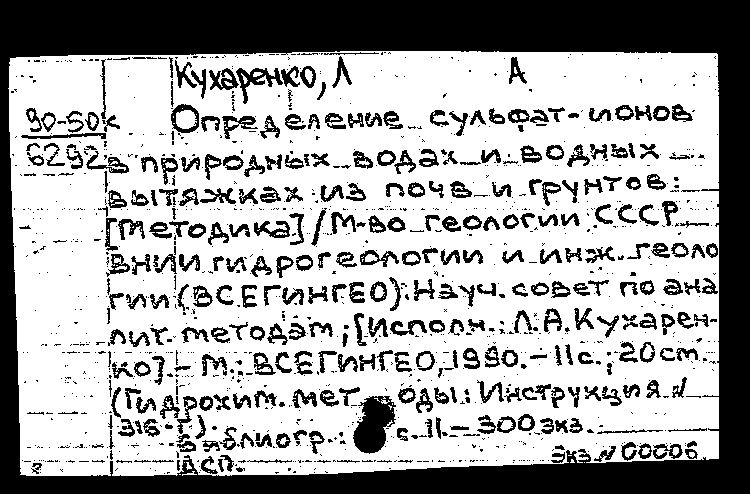 Кухаренко, Л А
90-50к Определение сульфат-ионов
6292 в природных водах и водных
вытяжках из почв и грунтов:
[Методика] / М-во геологии СССР
ВНИИ гидрогеологии и инж. геоло
гии (ВСЕГИНГЕО). Науч. совет по ана
лит. методам ; [Исполн.: Л.А. Кухарен-
ко]. – М.: ВСЕГИНГЕО, 1990. – 11 с. ; 20 см.
(Гидрохим. методы: Инструкция N
316-Г).
Библиогр.: с. 11. – 300 экз.
ДСП. Экз. N 00006.